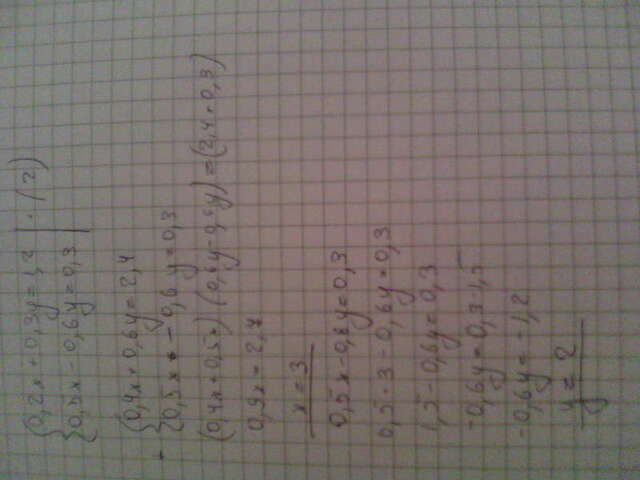 {0,2x + 0,3y = 1,2 | · (2)
{0,5x - 0,6y = 0,3
{0,4x + 0,6y = 2,4
{0,5x - 0,6y = 0,3
(0,4x + 0,5x) (0,6y - 0,6y) = (2,4 + 0,3)
0,9x = 2,7
x = 3
0,5x - 0,6y = 0,3
0,5 · 3 - 0,6y = 0,3
1,5 - 0,6y = 0,3
-0,6y = 0,3 - 1,5
-0,6y = -1,2
y = 2